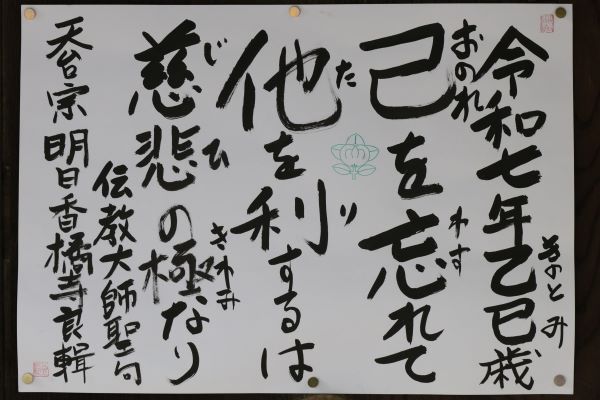 令和七年乙巳歳
きのとみ
己を忘れて
おのれ
わす
他を利するは
た
り
慈悲の極なり
じひ
きわみ
伝教大師聖句
天台宗明日香橘寺良輯